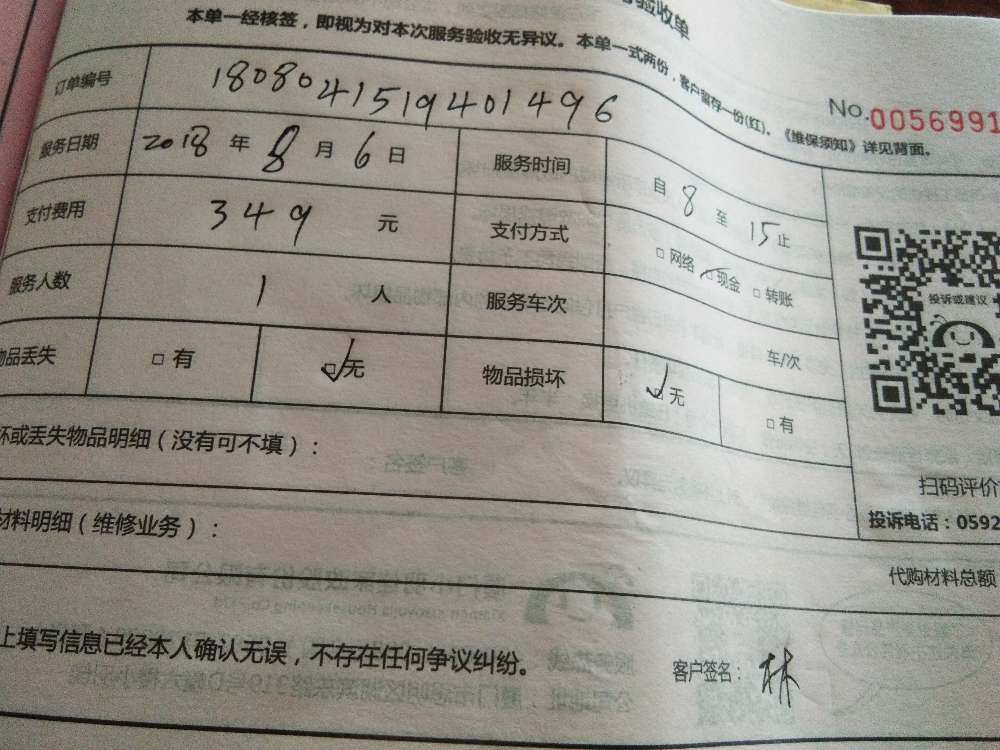 验收单
本单一经核签，即视为对本次服务验收无异议。本单一式两份，客户留存一份(红)。《维保须知》详见背面。
No.0056991
订单编号 180804151940149 6
服务日期 2018 年 8 月 6 日 服务时间 自 8 至 15 止
支付费用 349 元 支付方式 □ 网络 □ 现金 □ 转账
服务人数 1 人 服务车次 车/次
物品丢失 □ 有 □ 无 物品损坏 □ 无 □ 有
坏或丢失物品明细（没有可不填）：
投诉或建议
扫码评价
投诉电话：0592
材料明细（维修业务）：
代购材料总额
上填写信息已经本人确认无误，不存在任何争议纠纷。
客户签名： 林